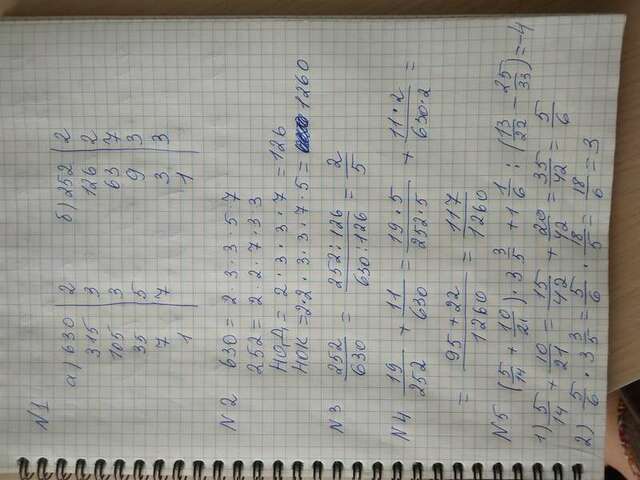 N1
а) 630 | 2 б) 252 | 2
315 | 3 126 | 2
105 | 3 63 | 7
35 | 5 9 | 3
7 | 7 3 | 3
1 1
N2 630 = 2·3·3·5·7
252 = 2·2·7·3·3
НОД = 2·3·3·7 = 126
НОК = 2·2·3·3·7·5 = 1260
N3 252/630 = 252:126/630:126 = 2/5
N4 19/252 + 11/630 = 19·5/252·5 + 11·2/630·2 =
= 95+22/1260 = 117/1260
N5 (5/14 + 10/21)·3 3/5 + 1 1/6 : (13/22 - 25/33) = -4
1) 5/14 + 10/21 = 15/42 + 20/42 = 35/42 = 5/6
2) 5/6 · 3 3/5 = 5/6 · 18/5 = 18/6 = 3